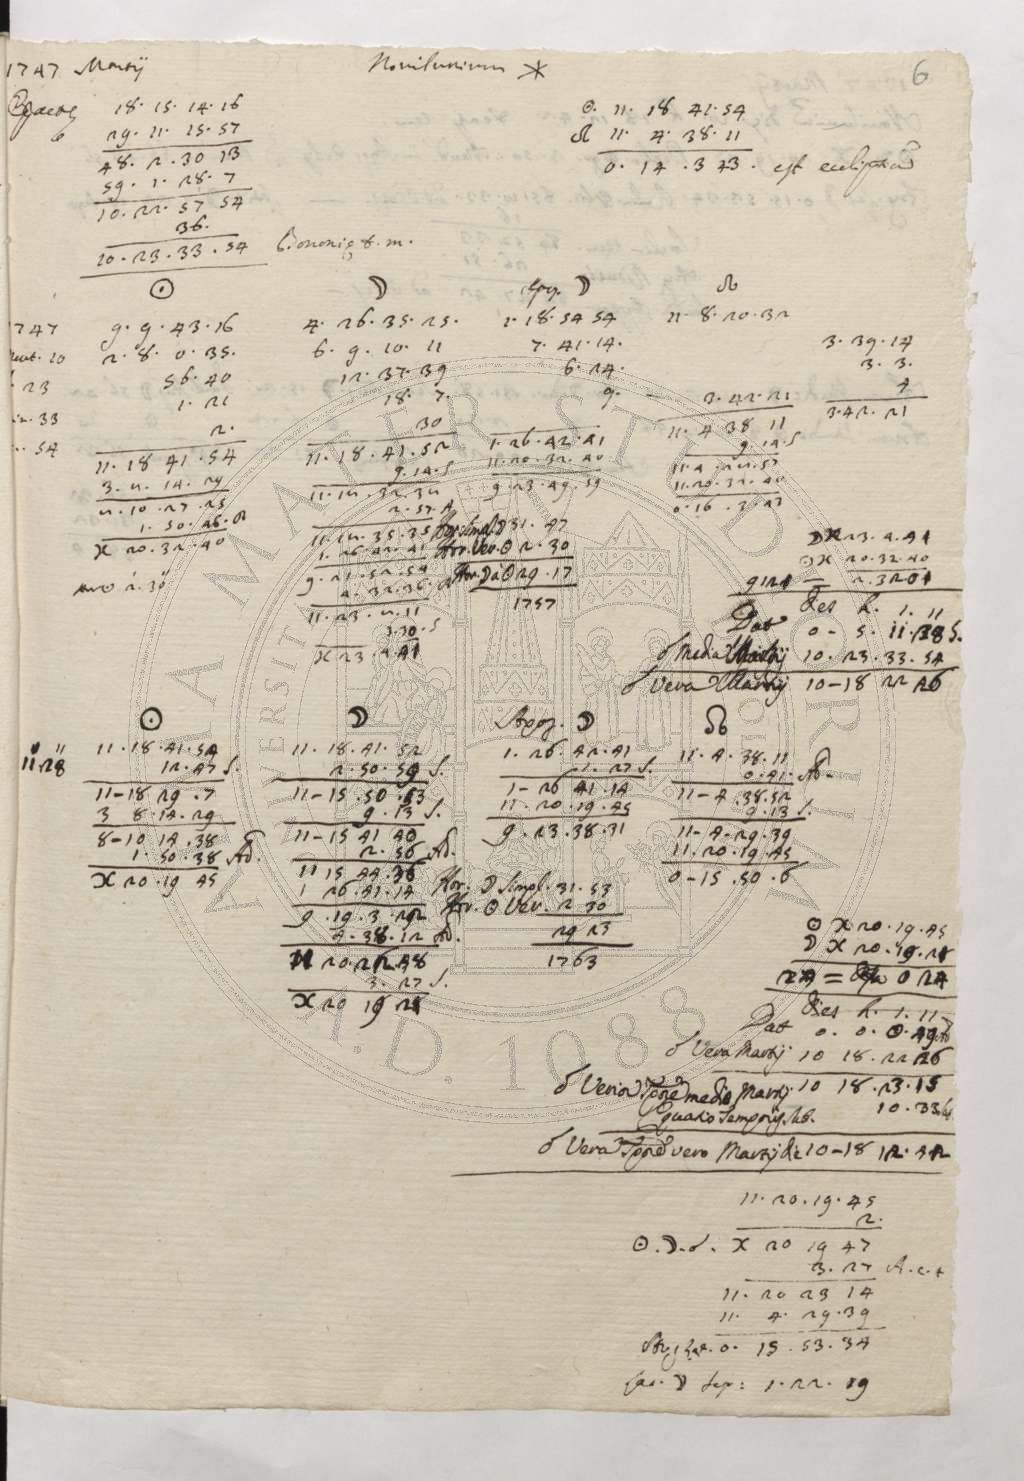 1747 Martij Novilunium ✶ 6
Epactę 18. 15. 14. 16
29. 11. 15. 57
48. 2. 30 13
59. 1. 28. 7
10. 22. 57 54
36.
10. 23. 33. 54 Bononię t. m.
☉. 11. 18 41. 54
☊ 11. 4. 38. 11
0. 14. 3 43. est eclipt
☉ ☽ Apog. ☽ ☊
1747 9. 9. 43. 16
10 2. 8. 0. 35.
23 56. 40
33 1. 21
54 2.
11. 18 41. 54
3. 8. 14. 29
8. 10. 27. 25
1. 50. 46. A
♓ 20. 32. 40
4. 26. 35. 25.
6. 9. 10. 11
12. 37. 39
18. 7.
30
11. 18. 41. 52
9. 14. S
11. 18. 32. 38
2. 57. A
11. 18. 35. 35
1. 26. 42. 41
9. 21. 52. 54
4. 32. 36. A
11. 23. 8. 11
3. 30. S
♓ 23. 4. 41
1. 18. 54 54
7. 41. 14.
6. 24.
9.
1. 26. 42. 41
11. 20. 32. 40
9. 23. 49. 59
Hor. Simpl. ☽ 31. 47
Hor. Ver. ☉ 2. 30
Hor. ☽ à ☉ 29. 17
1757
11. 8. 20. 32
3. 42. 21
11. 4 38 11
9. 14. S
11. 20. 32. 40
3. 39. 14
3. 3.
4
3. 42. 21
☽ ♓ 23. 4. 41
☉ ♓ 20. 32. 40
Dies h. I. II
Dat 0 - 5. 11. 28 S.
☌ Media Martij 10. 23. 33. 54
☌ Vera Martij 10 - 18 22 26
☉ ☽ Apog. ☽ ☊
11. 28
11. 18. 41. 54
12. 47 S.
11 - 18 29. 7
3 8. 14. 29
8 - 10 14. 38
1. 50. 38 Ad.
♓ 20. 19 45
11. 18. 41. 52
2. 50. 59 S.
11 - 15. 50. 53
9. 13 S.
11 - 15 41 40
2. 56 Ad.
11 15 44. 36
1 26. 41. 14
9. 19. 3. 22
4. 38. 12 Ad.
11 20. 22. 48
3. 27 S.
♓ 20 19 21
1. 26. 42. 41
1. 27 S.
1 - 26 41. 14
11. 20. 19. 45
9. 23. 38. 31
Hor. ☽ Simpl. 31. 53
Hor. ☉ Ver. 2 30
29 23
1763
11. 4. 38. 11
0. 41. Ad.
11 - 4. 38. 52
9. 13 S.
11 - 4 - 29. 39
11. 20. 19. 45
0 - 15. 50. 6
☉ ♓ 20. 19. 45
☽ ♓ 20. 19. 21
24 = 0 24
Dies h. I. II
Dat 0. 0. 0. 49 Ad
☌ Vera Martij 10 18. 22 26
☌ Verior Tpõre medio Martij. 10 18. 23. 15
Equatio Temporis Sub. 10. 33
☌ Vera Tpõre vero Martij die 10 - 18 12. 42
11. 20. 19. 45
2.
☉. ☽. ☌. ♓ 20 19 47
3. 27
11. 20 23 14
11. 4. 29. 39
Arg. Lat. 0. 15. 53. 34
Lat. ☽ Sep: 1. 22. 19